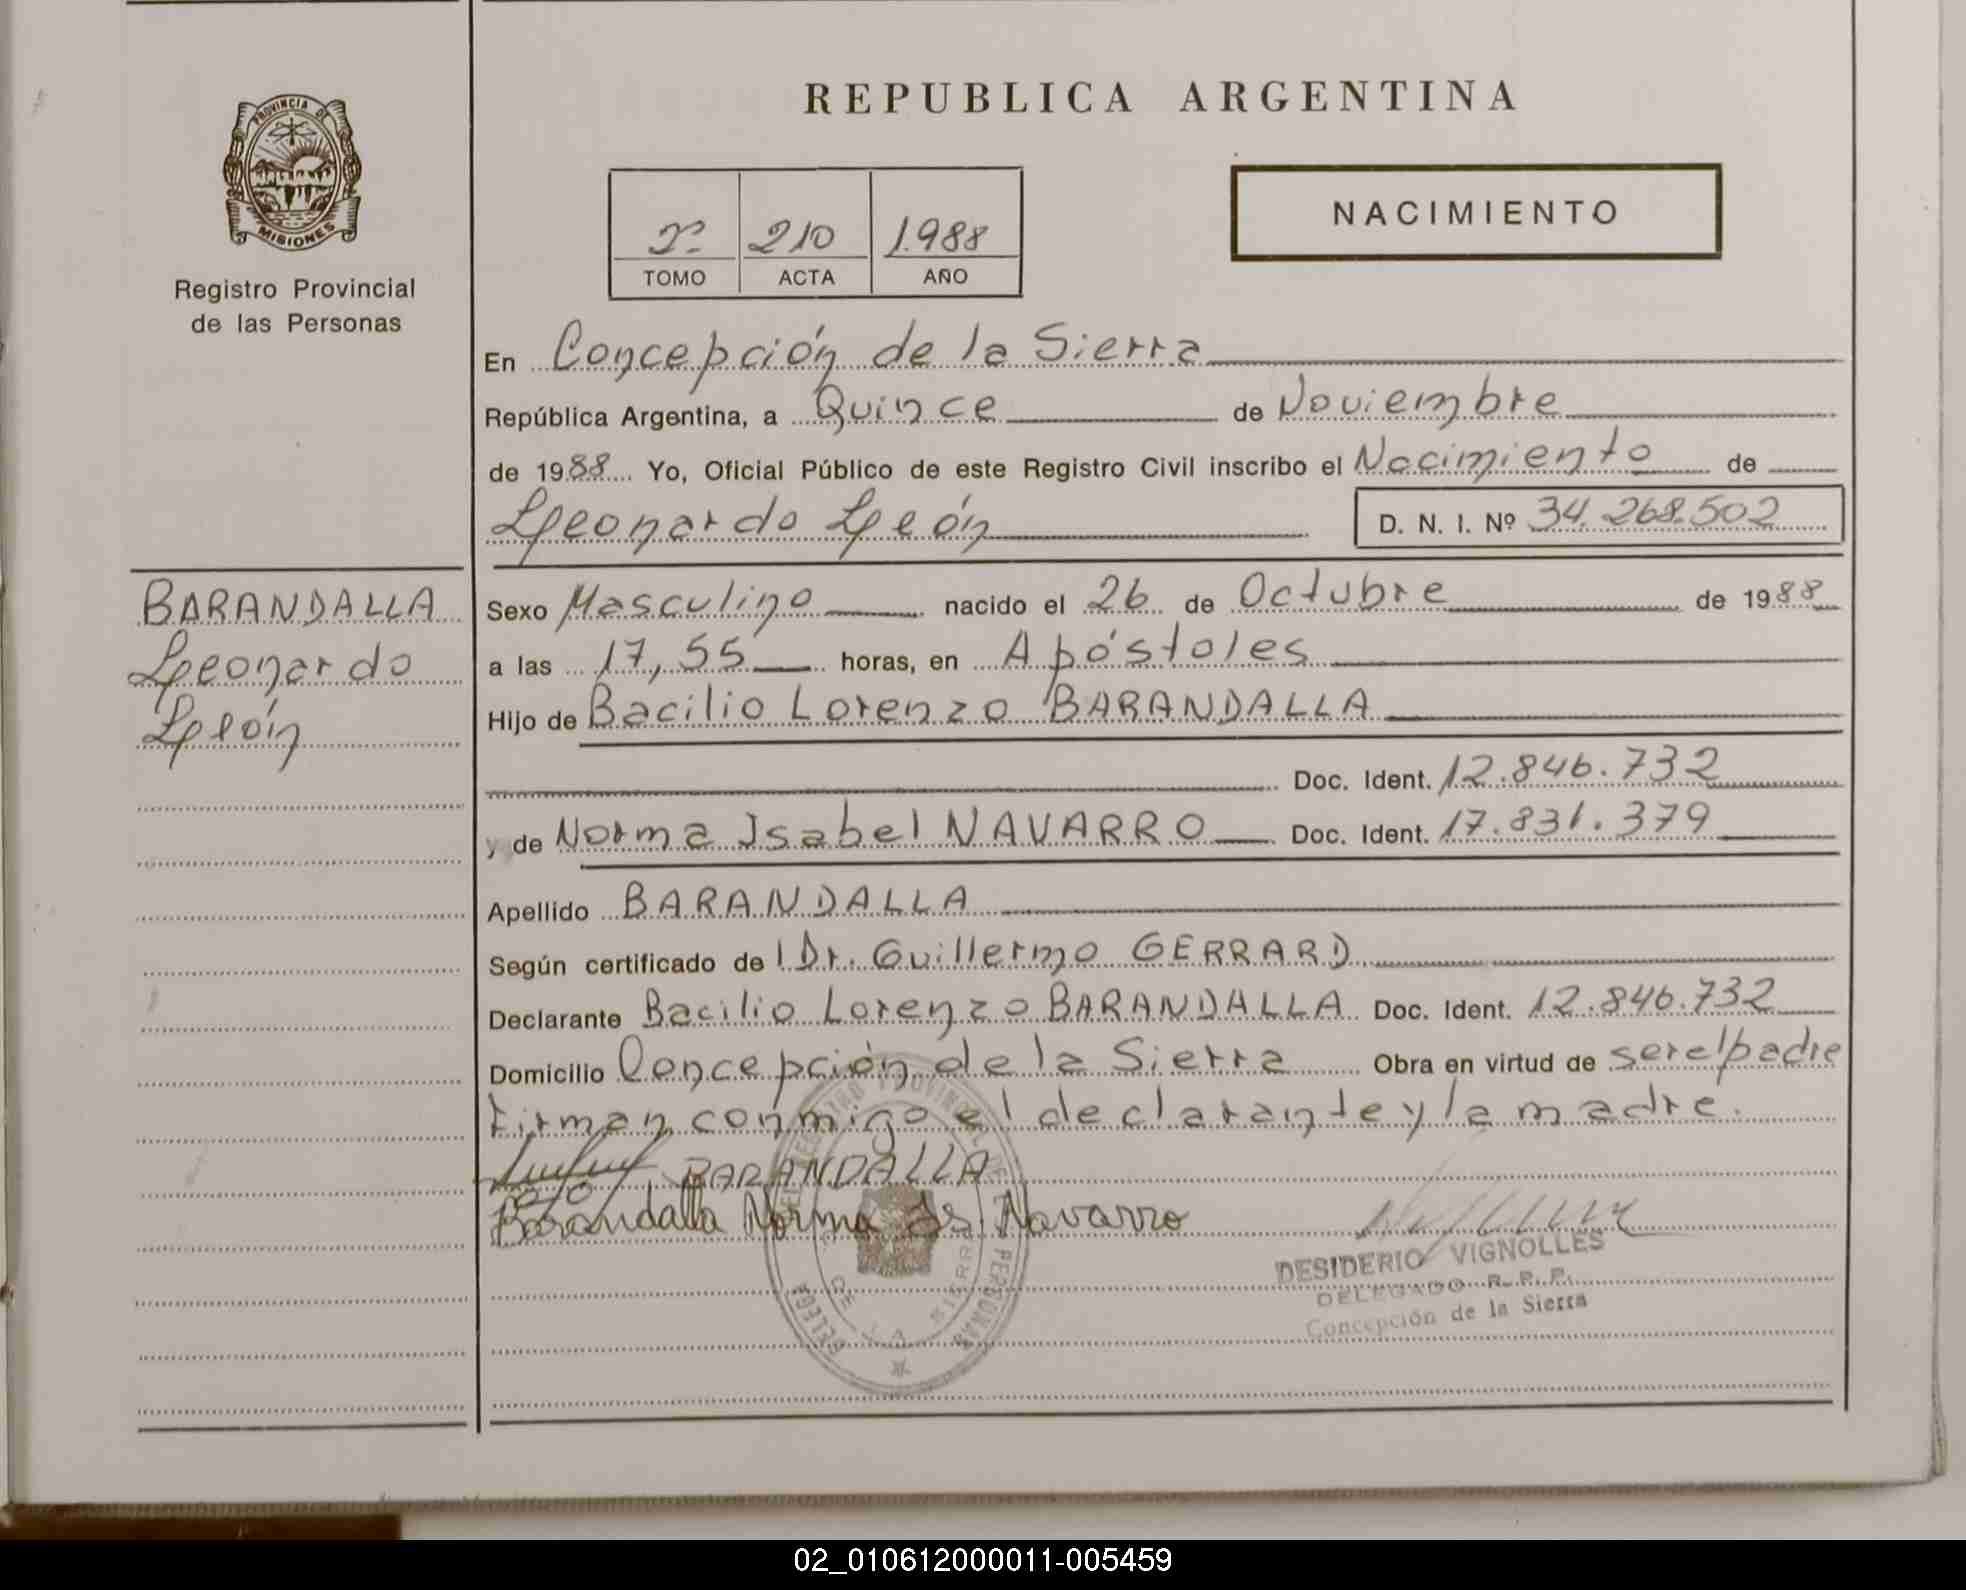 PROVINCIA DE
MISIONES
Registro Provincial
de las Personas
BARANDALLA
Leonardo
León
REPUBLICA ARGENTINA
210 1.988
TOMO ACTA AÑO
NACIMIENTO
En Concepción de la Sierra
República Argentina, a Quince de Noviembre
de 1988 Yo, Oficial Público de este Registro Civil inscribo el Nacimiento de
Leonardo León D. N. I. Nº 34.268.502
Sexo Masculino nacido el 26 de Octubre de 1988
a las 17,55 horas, en Apóstoles
Hijo de Bacilio Lorenzo BARANDALLA
Doc. Ident. 12.846.732
y de Norma Isabel NAVARRO Doc. Ident. 17.831.379
Apellido BARANDALLA
Según certificado de l Dr. Guillermo GERRARD
Declarante Bacilio Lorenzo BARANDALLA Doc. Ident. 12.846.732
Domicilio Concepción de la Sierra Obra en virtud de ser el padre
firman conmigo el declarante y la madre.
BARANDALLA
Barandalla Norma de Navarro
DESIDERIO VIGNOLLES
DELEGADO R. P. P.
Concepción de la Sierra
02_010612000011-005459